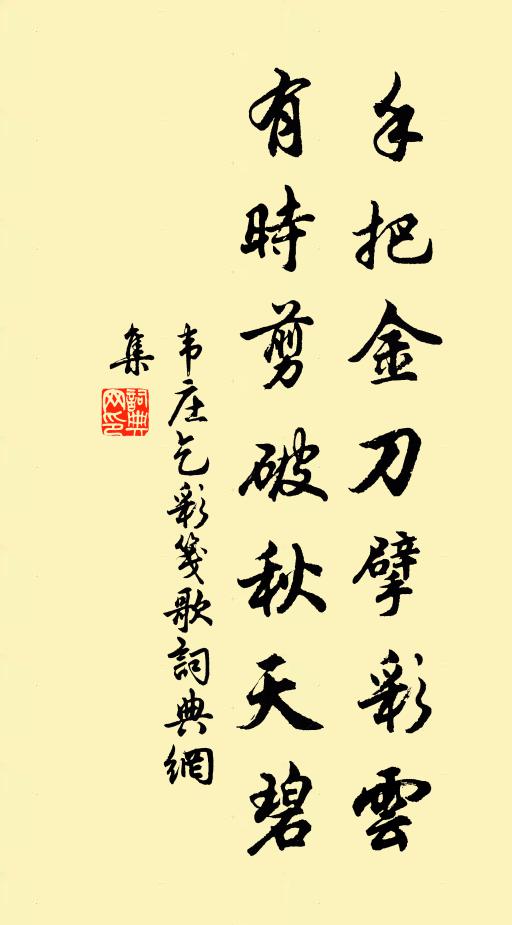 手把金刀擘彩雲
有時剪破秋天碧
韦庄乞彩箋歌詞典網
集
詞典網印